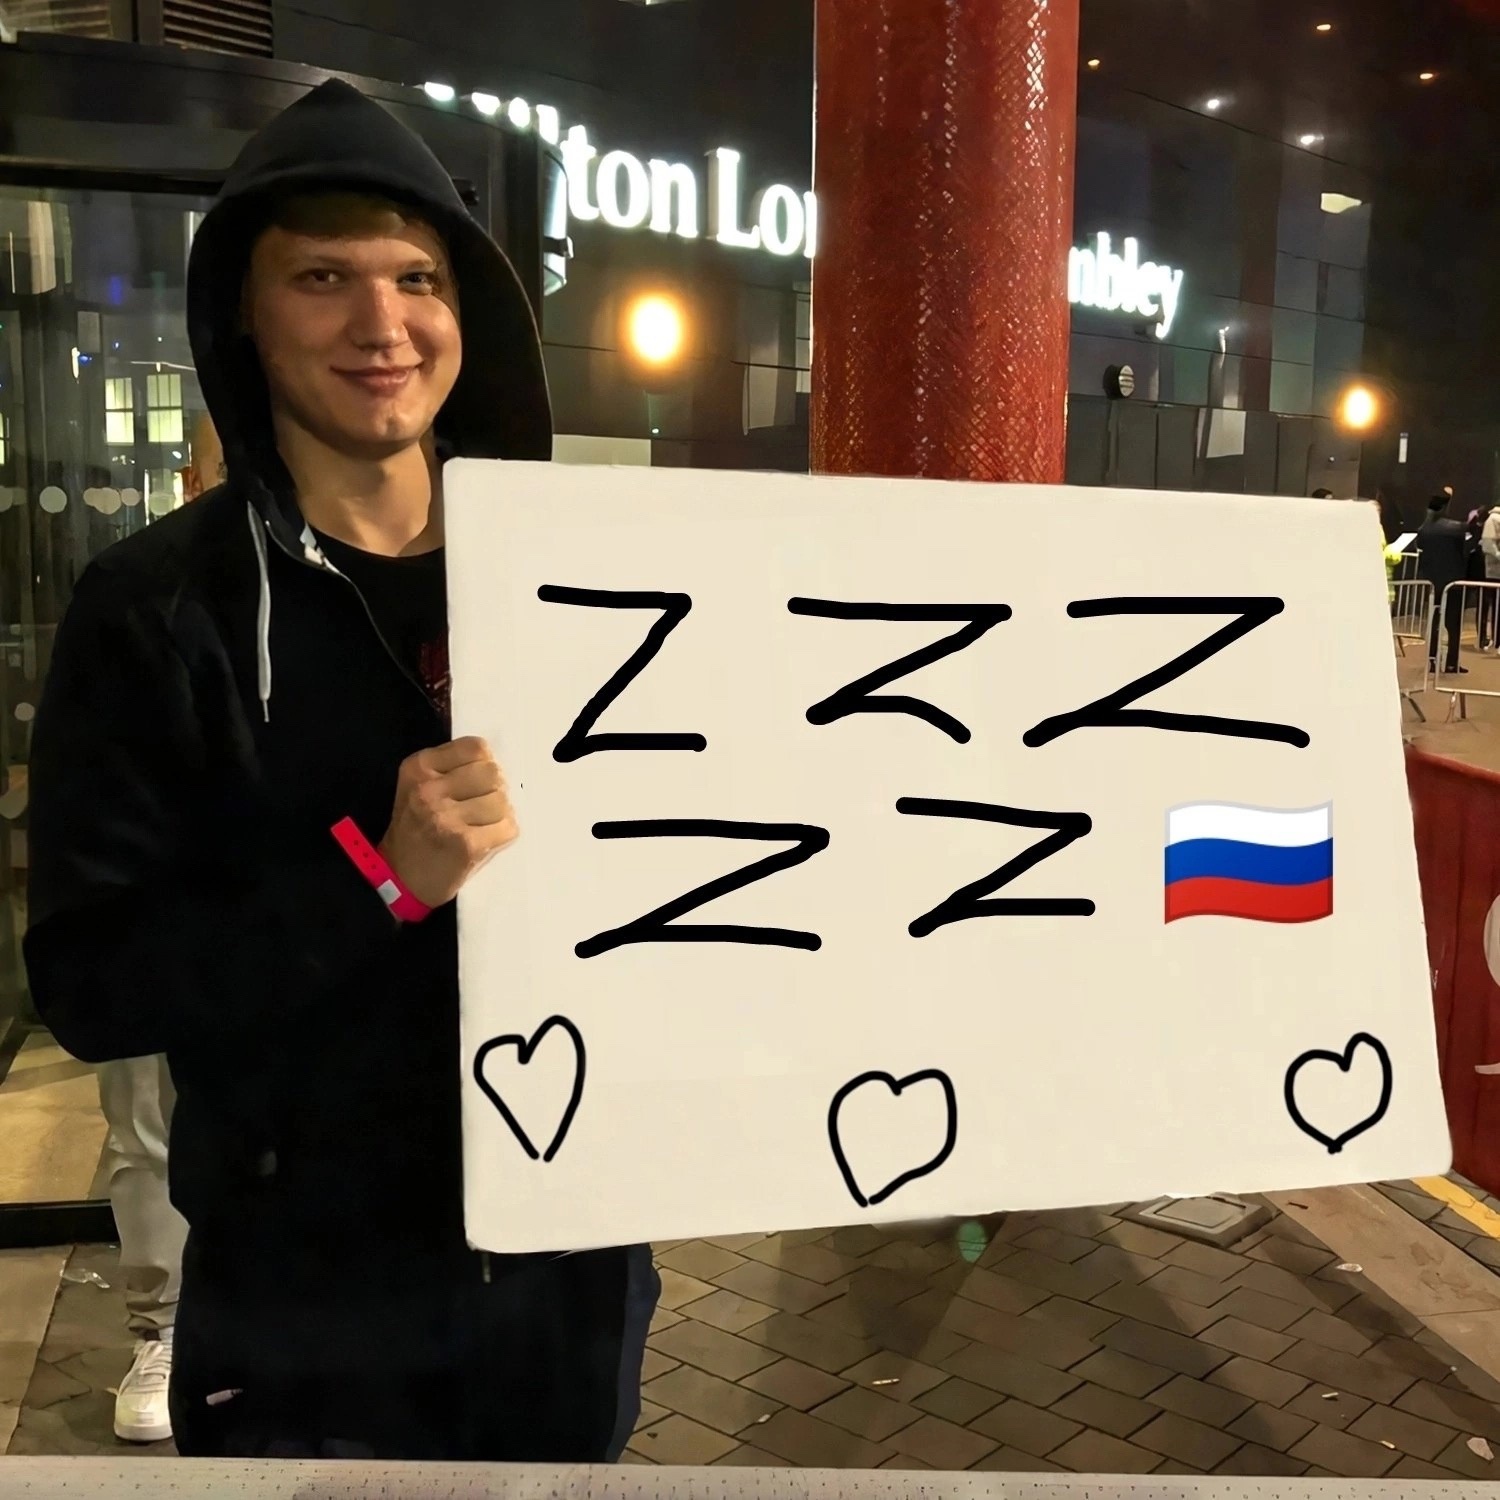 ton Lon
mbley
Z Z Z
Z Z 🇷🇺